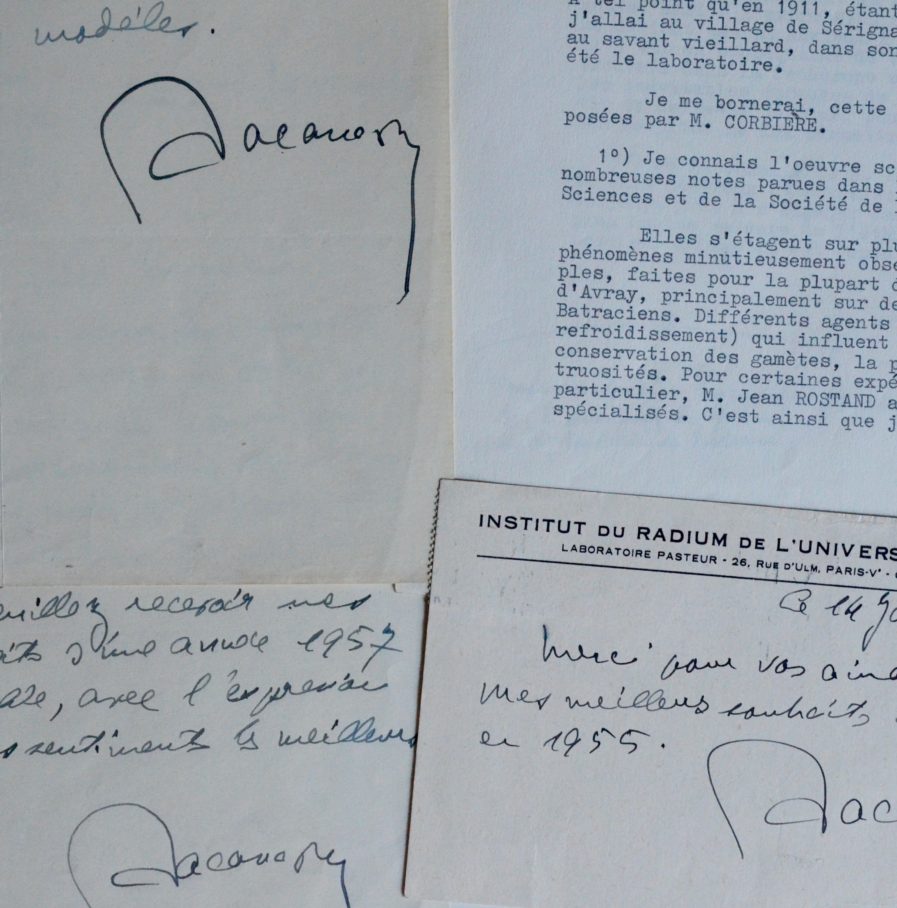 modèles.
Lacassagne
A tel point qu'en 1911, étant
j'allai au village de Sérigna
au savant vieillard, dans son
été le laboratoire.
Je me bornerai, cette
posées par M. CORBIÈRE.
1°) Je connais l'oeuvre sc
nombreuses notes parues dans
Sciences et de la Société de
Elles s'étagent sur plu
phénomènes minutieusement obse
ples, faites pour la plupart
d'Avray, principalement sur de
Batraciens. Différents agents
refroidissement) qui influent
conservation des gamètes, la p
truosités. Pour certaines expé
particulier, M. Jean ROSTAND a
spécialisés. C'est ainsi que j
euillez recevoir mes
aits d'une année 1957
avec l'expression
sentiments les meilleurs
Lacassagne
INSTITUT DU RADIUM DE L'UNIVERS
LABORATOIRE PASTEUR - 26, RUE D'ULM, PARIS-Vᵉ -
Ce 14 Ja
Merci pour vos aima
mes meilleurs souhaits
en 1955.
Lac